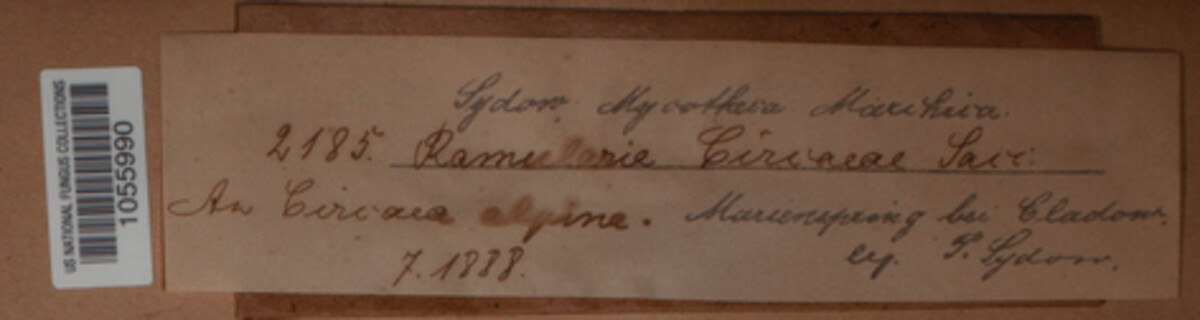 US NATIONAL FUNGUS COLLECTIONS
1055990
Sydow. Mycotheca Marchica.
2185. Ramularia Circaeae Sacc.
An Circaea alpina. Marienspring bei Cladow.
7. 1888. leg. P. Sydow.